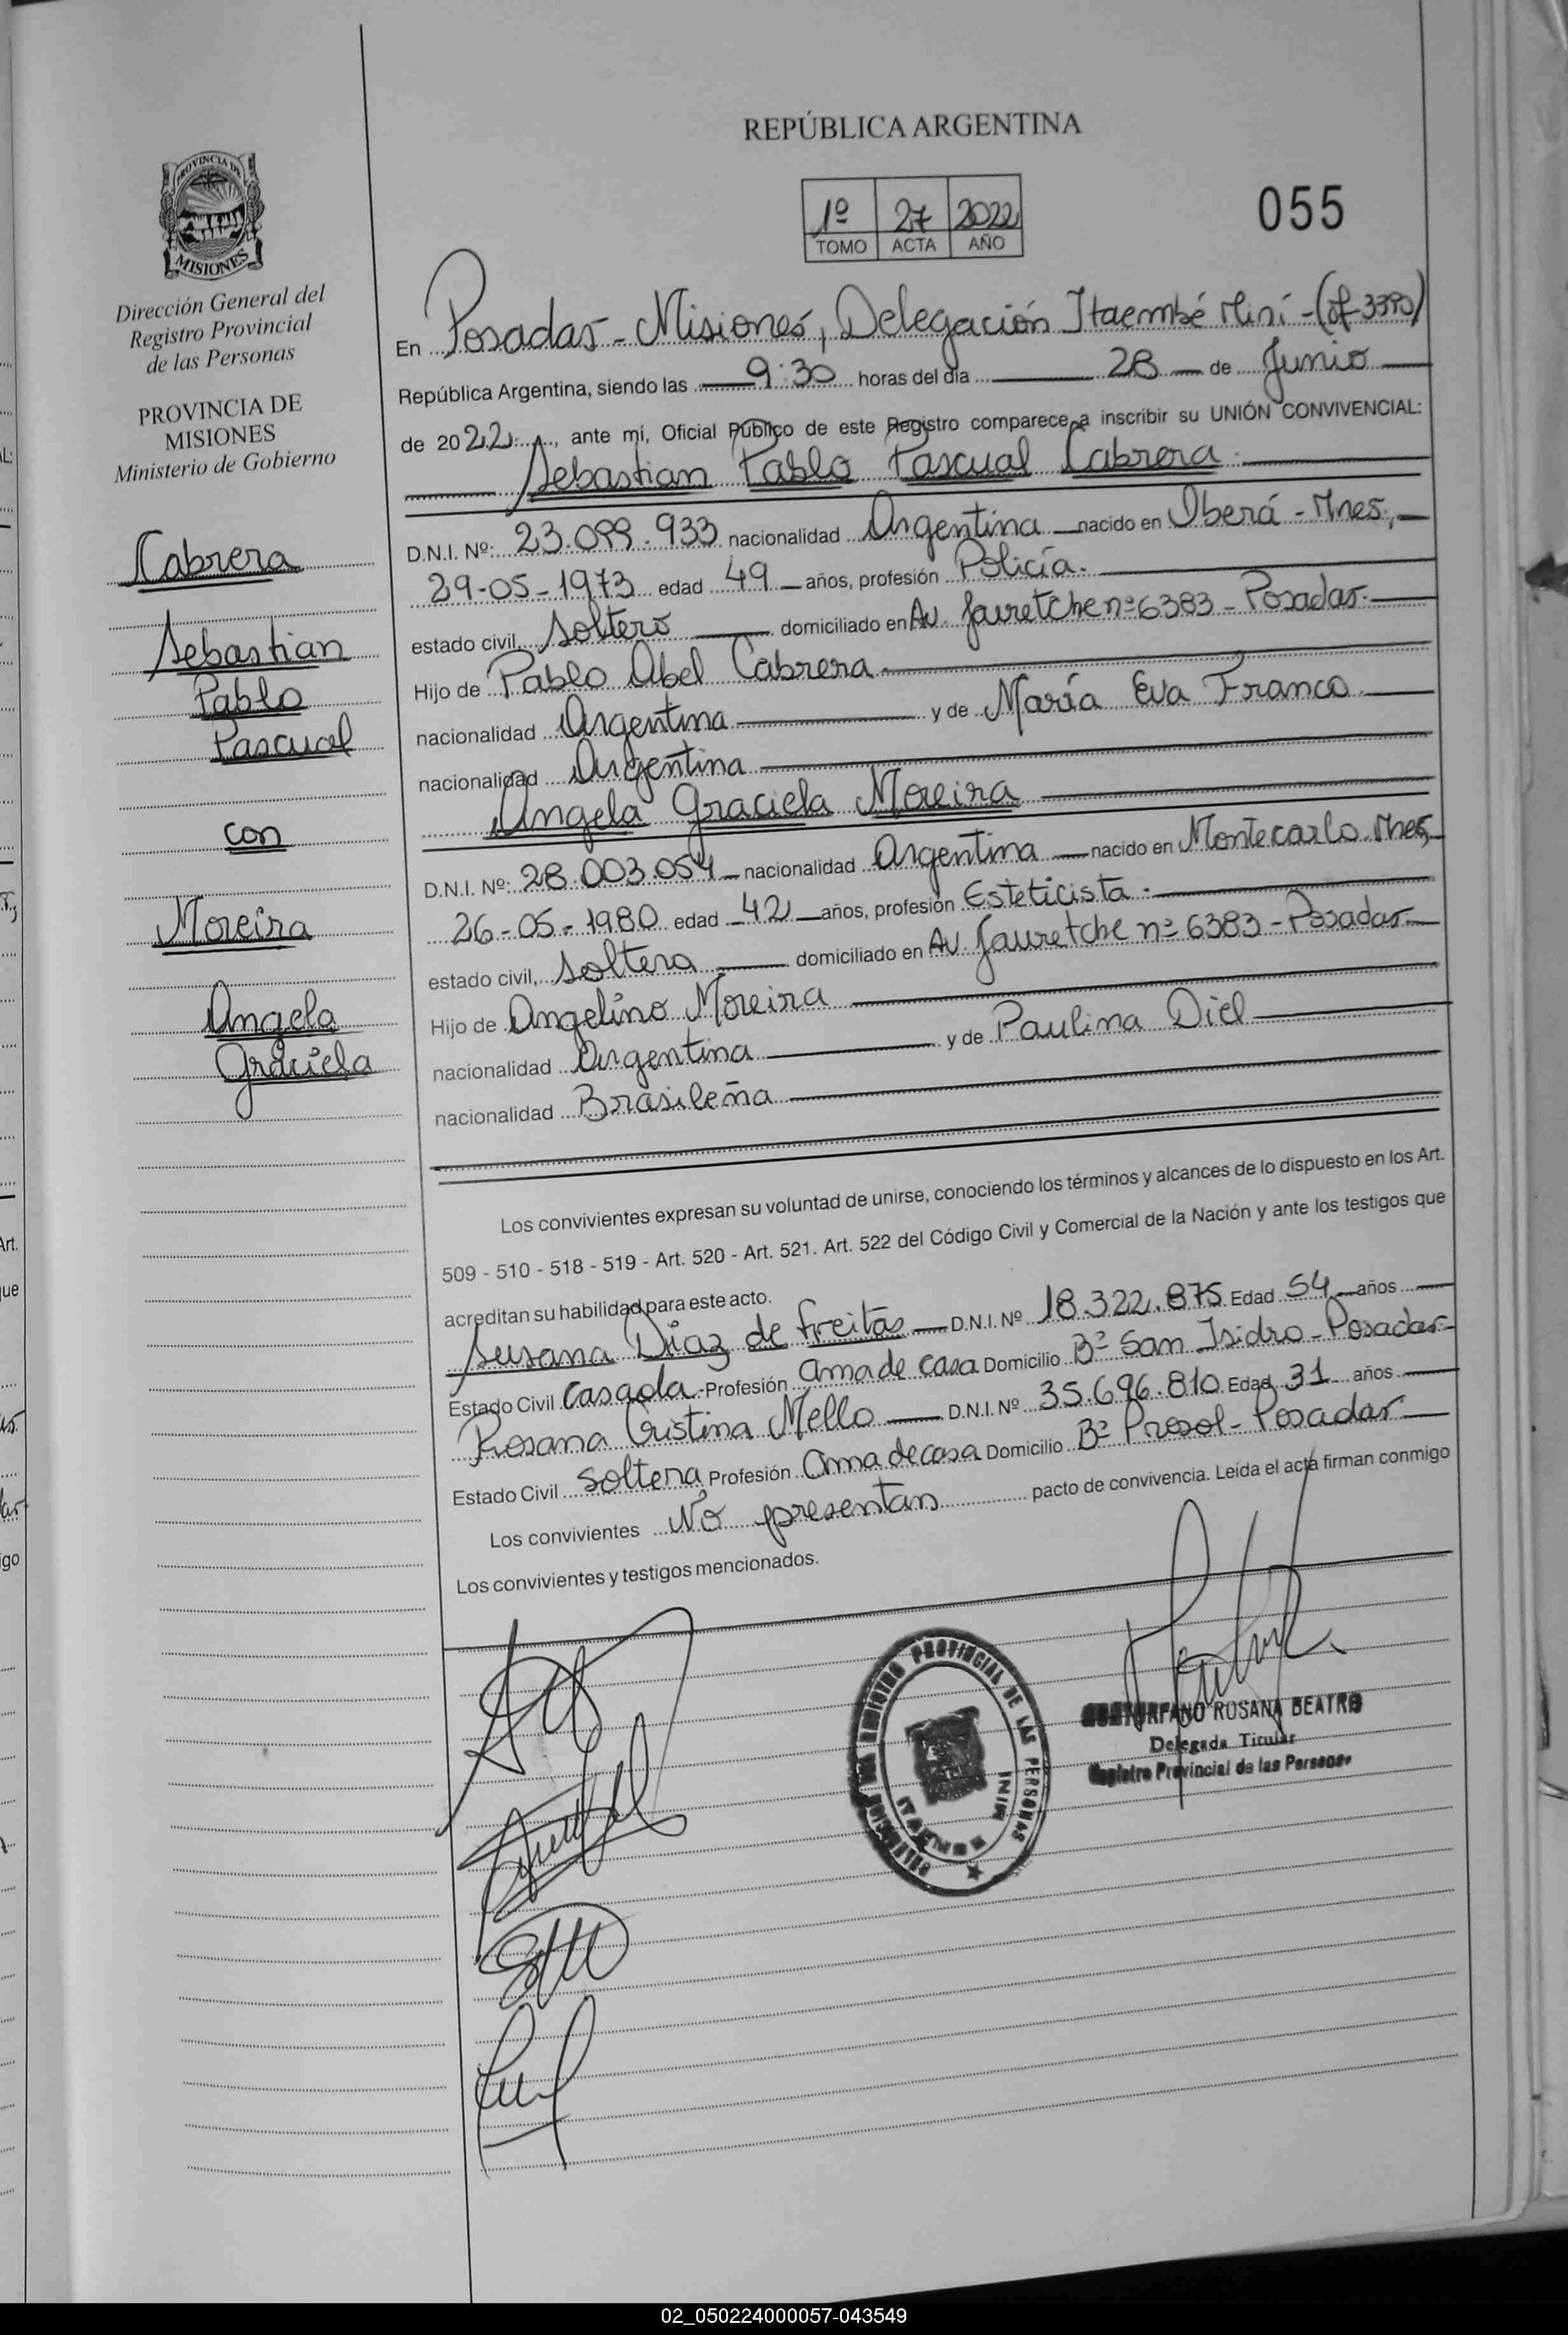 REPÚBLICA ARGENTINA
1º 27 2022
TOMO ACTA AÑO
055
PROVINCIA DE
MISIONES
Dirección General del
Registro Provincial
de las Personas
PROVINCIA DE
MISIONES
Ministerio de Gobierno
Cabrera
Sebastian
Pablo
Pascual
con
Moreira
Angela
Graciela
En Posadas - Misiones, Delegación Itaembé Miní - (of-3390)
República Argentina, siendo las 9:30 horas del día 28 de Junio
de 2022, ante mí, Oficial Público de este Registro comparece a inscribir su UNIÓN CONVIVENCIAL:
Sebastian Pablo Pascual Cabrera
D.N.I. Nº: 23.099.933 nacionalidad Argentina nacido en Iberá - Mnes,
29-05-1973 edad 49 años, profesión Policía.
estado civil, Soltero domiciliado en Av. Jauretche nº 6383 - Posadas.
Hijo de Pablo Abel Cabrera
nacionalidad Argentina y de María Eva Franco
nacionalidad Argentina
Angela Graciela Moreira
D.N.I. Nº: 28.003.054 nacionalidad Argentina nacido en Montecarlo. Mnes,
26-05-1980 edad 42 años, profesión Esteticista.
estado civil, Soltera domiciliado en Av. Jauretche nº 6383 - Posadas.
Hijo de Angelino Moreira
nacionalidad Argentina y de Paulina Diel
nacionalidad Brasileña
Los convivientes expresan su voluntad de unirse, conociendo los términos y alcances de lo dispuesto en los Art.
509 - 510 - 518 - 519 - Art. 520 - Art. 521. Art. 522 del Código Civil y Comercial de la Nación y ante los testigos que
acreditan su habilidad para este acto.
Susana Diaz de Freitas D.N.I. Nº 18.322.875 Edad 54 años
Estado Civil Casada Profesión ama de casa Domicilio Bº San Isidro - Posadas
Rosana Cristina Mello D.N.I. Nº 35.696.810 Edad 31 años
Estado Civil Soltera Profesión Ama de casa Domicilio Bº Prosol - Posadas
Los convivientes No presentan pacto de convivencia. Leida el acta firman conmigo
Los convivientes y testigos mencionados.
PROVINCIAL DE LAS PERSONAS
ITAEMBE MINI
ROSANA BEATR
Delegada Titular
Registro Provincial de las Personas
02_050224000057-043549